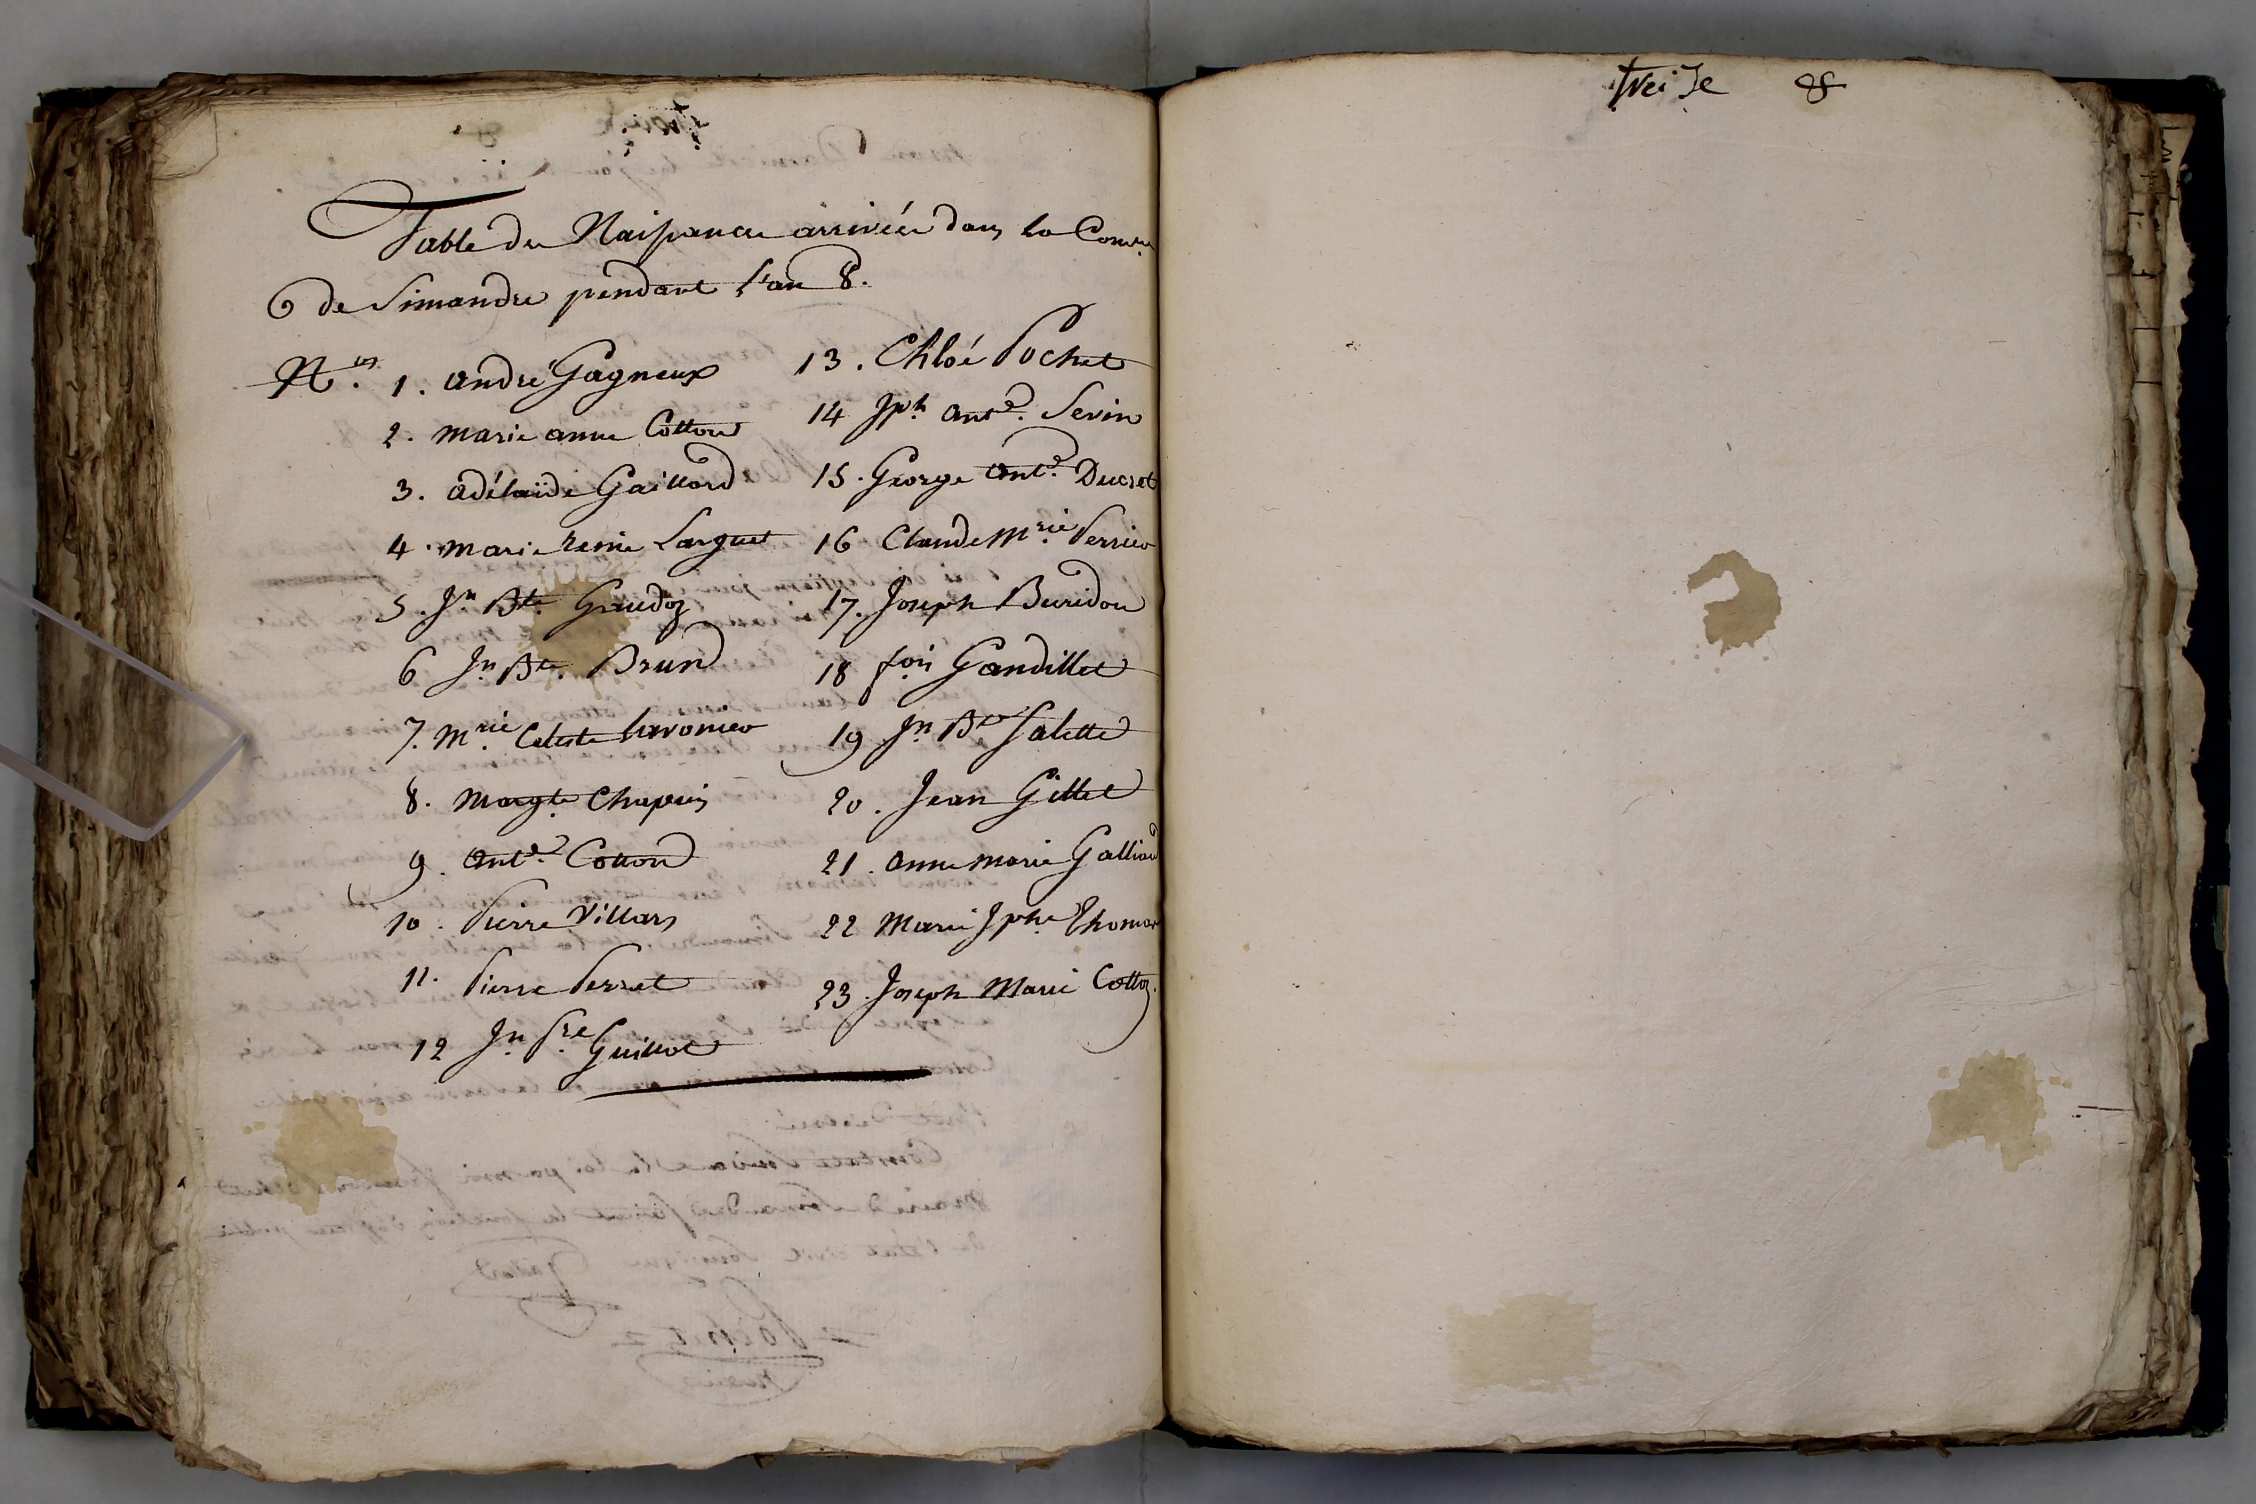 Table des Naissances arrivées dans la Comm.
de Simandre pendant l'an 8.
N.os 1. andré Gagneux
2. marie anne Cotton
3. adélaïde Gaillard
4. marie renie Larguet
5. Jn Bte Graudoz
6 Jn Bte. Brun
7. Mrie Celeste lavonier
8. Margte Chapuis
9. Ante. Cotton
10. Pierre Villars
11. Pierre Perret
12 Jn Pre Guillot
13. Chloé Pochet
14 Jph ante. Sevin
15. George Ante. Ducret
16 Claude Mrie Perrier
17. Joseph Buridon
18 fois Gandillet
19 Jn Bte Galette
20. Jean Gillet
21. anne marie Galliard
22 Marie Jphe Thomas
23. Joseph Marie Cottoz.
treize 8